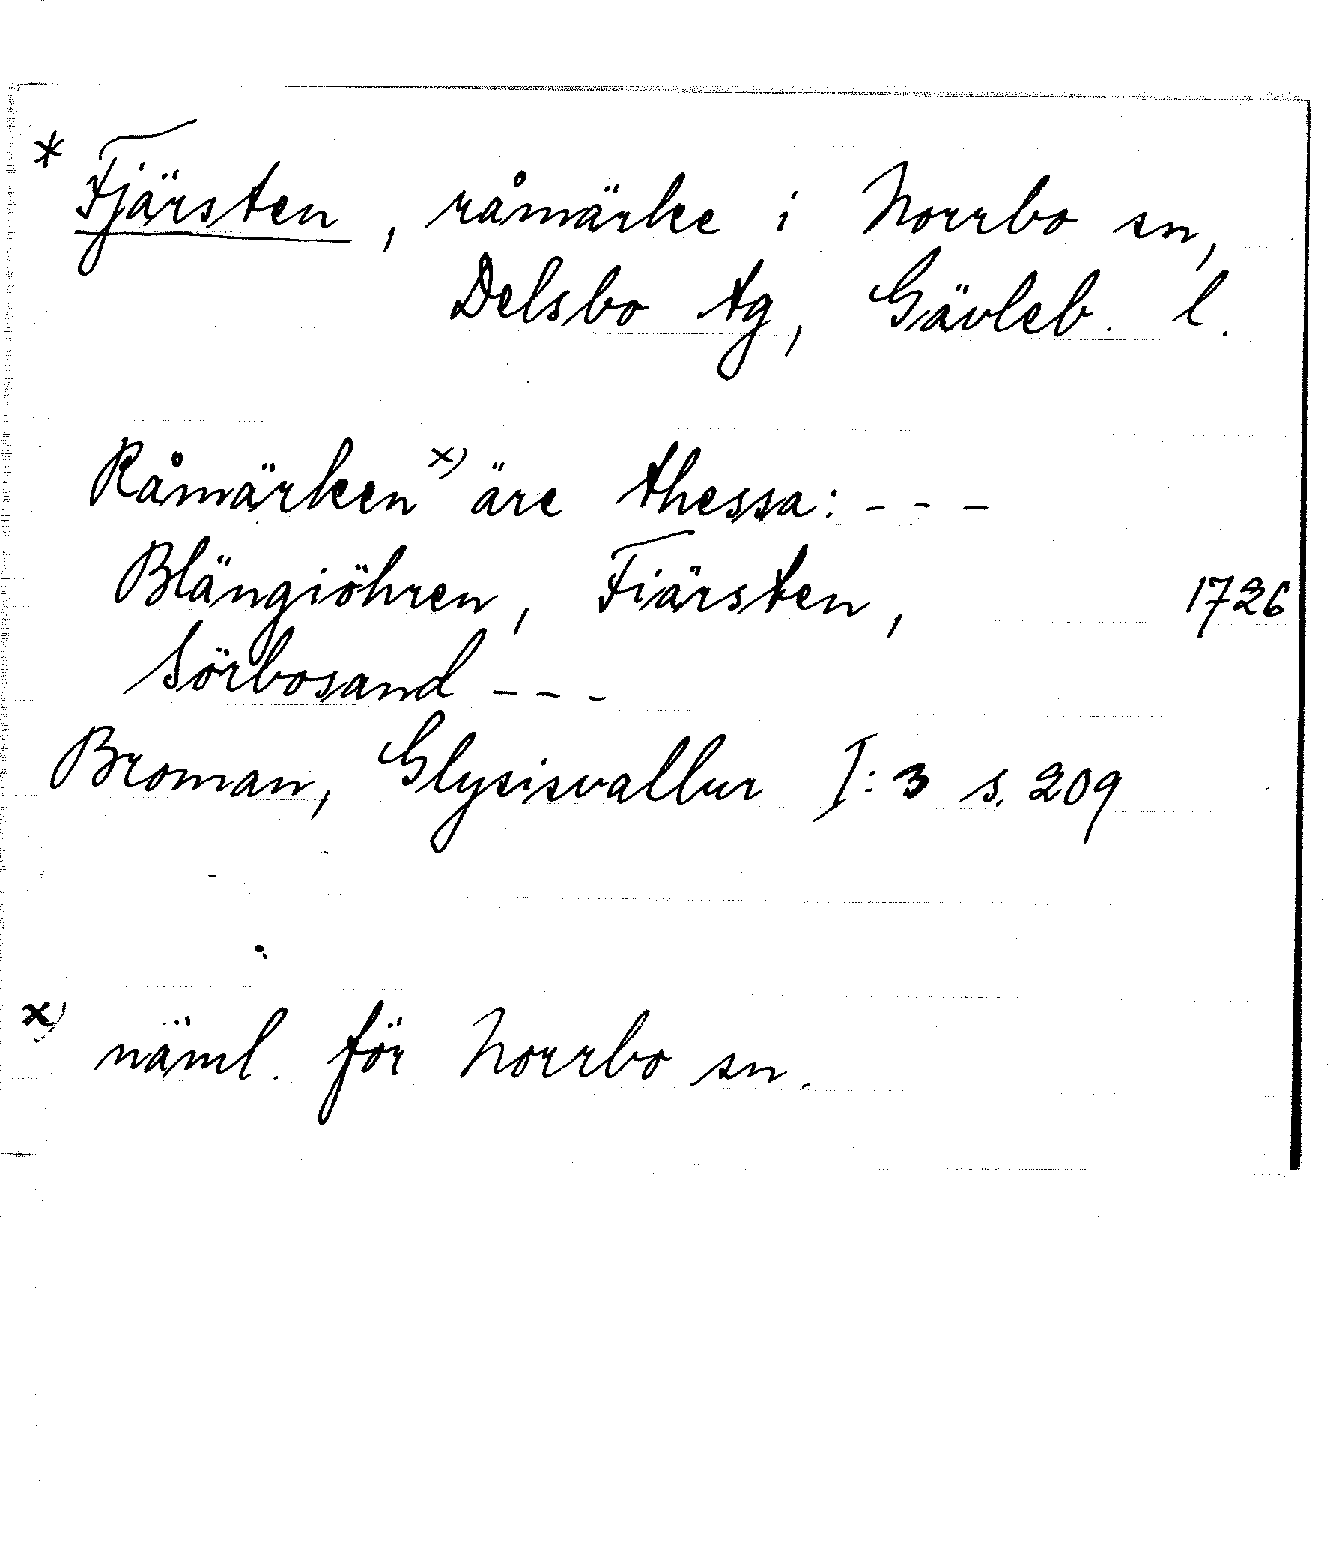 * Fjärsten, råmärke i Norrbo sn,
Delsbo tg, Gävleb. l.
Råmärken x) äre thessa: - - -
Blängiöhren, Fiärsten, 1726
Sörbosand - - -
Broman, Glysisvallur I:3 s. 209
x) näml. för Norrbo sn.